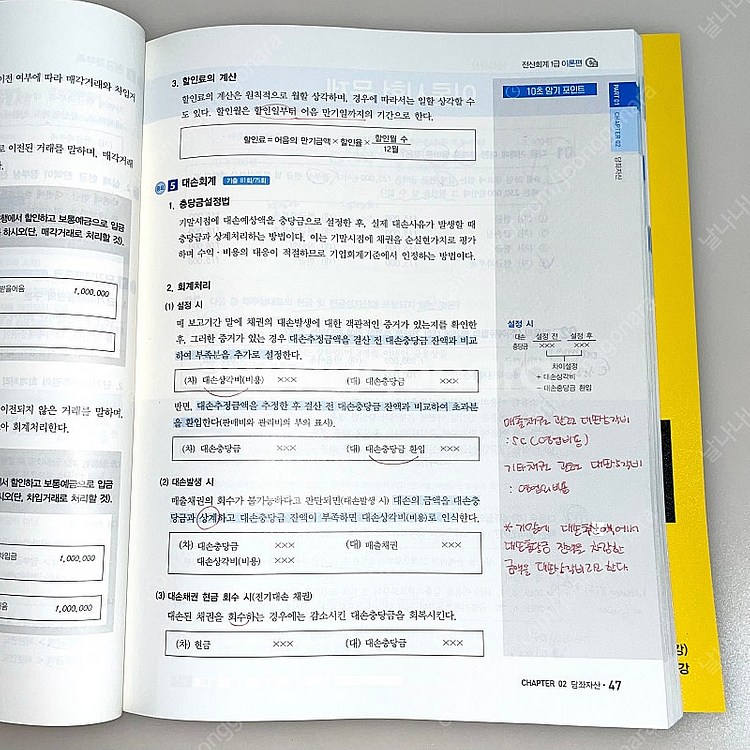 이전 여부에 따라 매각거래와 차입거
로 이전된 거래를 말하며, 매각거래
행에서 할인하고 보통예금으로 입금
하시오(단, 매각거래로 처리할 것).
받을어음 1,000,000
이전되지 않은 거래를 말하며,
아 회계처리한다.
서 할인하고 보통예금으로 입금
시오(단, 차입거래로 처리할 것).
차입금 1,000,000
1,000,000
전산회계 1급 이론편
3. 할인료의 계산
할인료의 계산은 원칙적으로 월할 상각하며, 경우에 따라서는 일할 상각할 수
도 있다. 할인월은 할인일부터 어음 만기일까지의 기간으로 한다.
할인료 = 어음의 만기금액 × 할인율 × 할인월 수
12월
5 대손회계 기출 81회/75회
1. 충당금설정법
기말시점에 대손예상액을 충당금으로 설정한 후, 실제 대손사유가 발생할 때
충당금과 상계처리하는 방법이다. 이는 기말시점에 채권을 순실현가치로 평가
하며 수익·비용의 대응이 적절하므로 기업회계기준에서 인정하는 방법이다.
2. 회계처리
(1) 설정 시
매 보고기간 말에 채권의 대손발생에 대한 객관적인 증거가 있는지를 확인한
후, 그러한 증거가 있는 경우 대손추정금액을 결산 전 대손충당금 잔액과 비교
하여 부족분을 추가로 설정한다.
(차) 대손상각비(비용) ××× (대) 대손충당금 ×××
반면, 대손추정금액을 수정한 후 결산 전 대손충당금 잔액과 비교하여 초과분
을 환입한다(판매비와 관리비의 부의 표시).
(차) 대손충당금 ××× (대) 대손충당금 환입 ×××
(2) 대손발생 시
매출채권의 회수가 불가능하다고 판단되면(대손발생 시) 대손의 금액을 대손충
당금과 상계하고 대손충당금 잔액이 부족하면 대손상각비(비용)로 인식한다.
(차) 대손충당금 ××× (대) 매출채권 ×××
대손상각비(비용) ×××
(3) 대손채권 현금 회수 시(전기대손 채권)
대손된 채권을 회수하는 경우에는 감소시킨 대손충당금을 회복시킨다.
(차) 현금 ××× (대) 대손충당금 ×××
10초 암기 포인트
PART 01
CHAPTER 02
당좌자산
설정 시
대손 설정 전 설정 후
충당금 ××× ×××
차이설정
+ 대손상각비
− 대손충당금 환입
매출채권 관련 대손상각비
기타채권 관련 대손상각비
: 영업외비용
* 기말에 대손추산액에서
대손충당금 잔액을 차감한
금액을 대손상각비라고 한다.
CHAPTER 02 당좌자산 · 47
강)
강